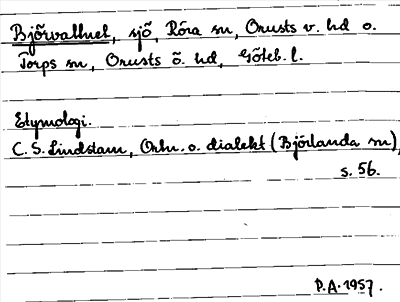 Björvallnel, sjö, Röra sn, Orusts v. hd o.
Torps sn, Orusts ö. hd, Göteb. l.
Etymologi.
C. S. Lindstam, Ortn. o. dialekt (Björlanda sn),
s. 56.
P.A. 1957.